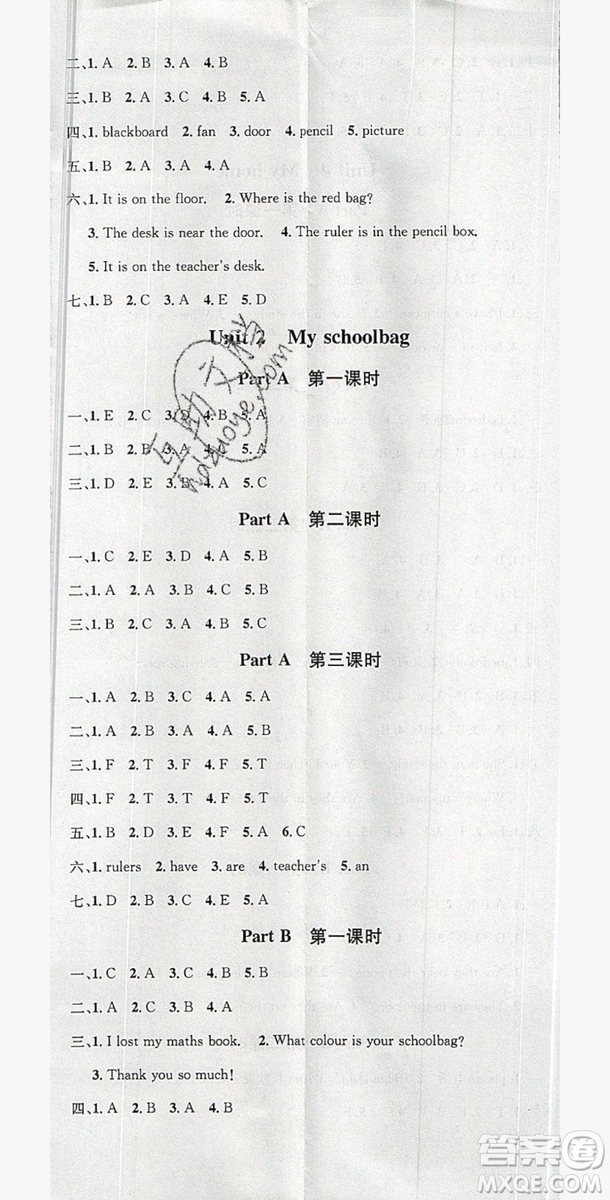 二、1. A 2. B 3. A 4. B
三、1. B 2. C 3. A 4. B 5. A
四、1. blackboard 2. fan 3. door 4. pencil 5. picture
五、1. B 2. A 3. B 4. A 5. B
六、1. It is on the floor. 2. Where is the red bag?
3. The desk is near the door. 4. The ruler is in the pencil box.
5. It is on the teacher's desk.
七、1. B 2. C 3. A 4. E 5. D
Unit 2 My schoolbag
Part A 第一课时
一、1. E 2. C 3. D 4. B 5. A
二、1. B 2. B 3. A 4. A 5. B
三、1. D 2. E 3. B 4. A 5. C
Part A 第二课时
一、1. C 2. E 3. D 4. A 5. B
二、1. A 2. A 3. B 4. A 5. B
三、1. B 2. A 3. B 4. B 5. A
Part A 第三课时
一、1. A 2. B 3. A 4. A 5. A
二、1. A 2. B 3. C 4. B
三、1. F 2. T 3. F 4. F 5. T
四、1. F 2. T 3. T 4. F 5. T
五、1. B 2. D 3. E 4. F 5. A 6. C
六、1. rulers 2. have 3. are 4. teacher's 5. an
七、1. D 2. B 3. C 4. E 5. A
Part B 第一课时
一、1. C 2. A 3. C 4. A 5. B
二、1. A 2. A 3. B 4. C
三、1. I lost my maths book. 2. What colour is your schoolbag?
3. Thank you so much!
四、1. A 2. B 3. A 4. B 5. A
答案圈
MXQE.COM